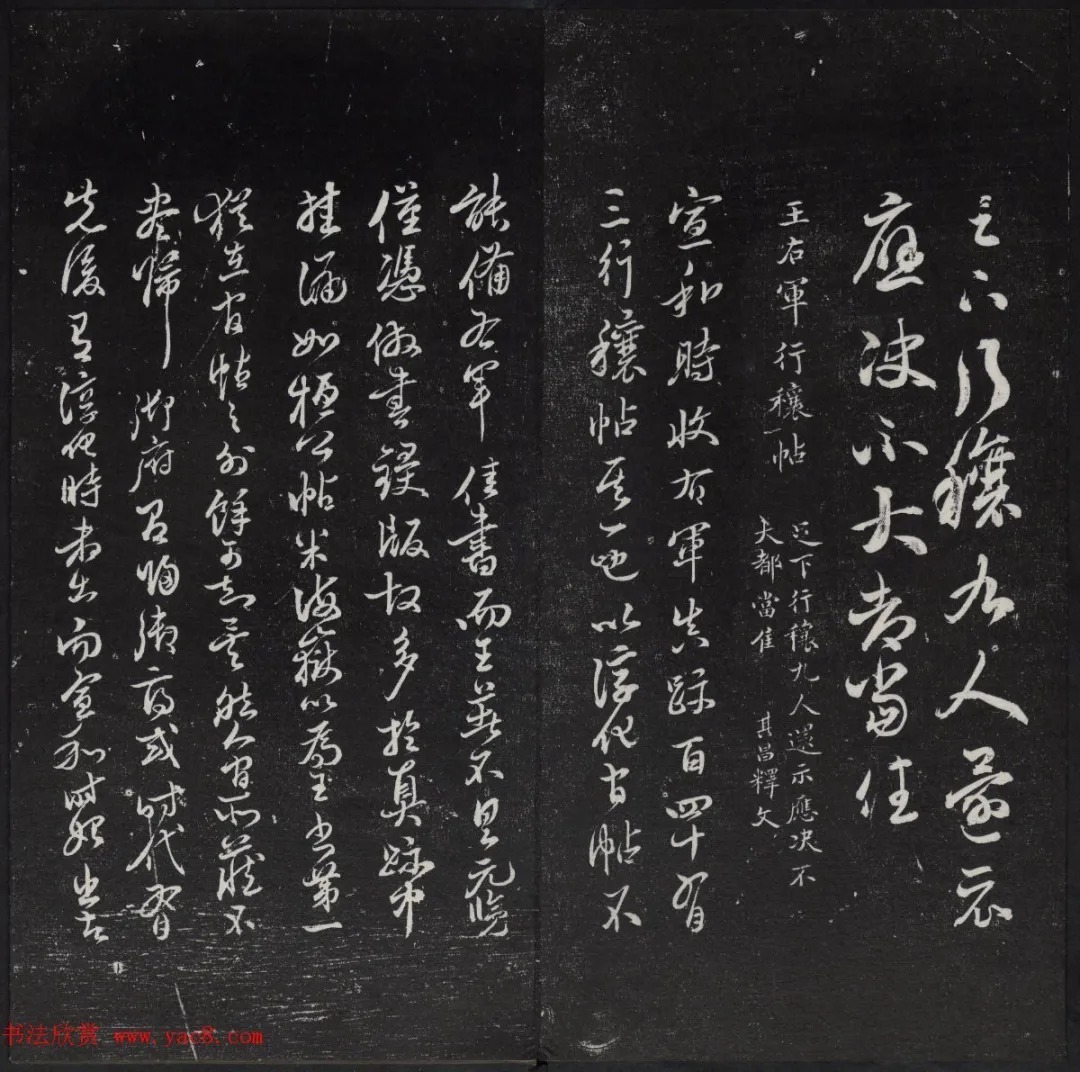 足下行穰九人還示
應決不大都當佳
王右軍行穰帖
足下行穰九人還示應決不
大都當佳 其昌釋文
宣和時收右軍真跡百四十有
三行穰帖其一也以淳化官帖不
能備右軍佳書而王著不具元覽
僅憑倣書鋟版故多於真跡中
挂漏如桓公帖米海嶽以為王書第一
猶在官帖之外餘可知矣然人間所藏不
盡歸 御府即歸御府或時代有
先後有淳化時未出而宣和時始出者
书法欣赏 www.yac8.com